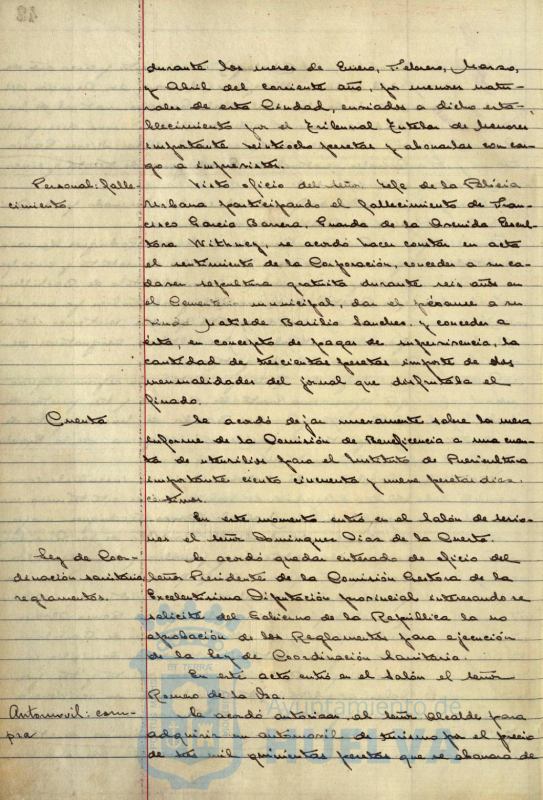 48
durante los meses de Enero, Febrero, Marzo,
y Abril del corriente año, por menores natu-
rales de esta Ciudad, enviados a dicho esta-
blecimiento por el Tribunal Tutelar de Menores
importante veintiocho pesetas y abonarlas con car-
go a imprevistos.
Personal: falle-
cimiento.
Visto oficio del señor Jefe de la Policia
Urbana participando el fallecimiento de Fran-
cisco Garcia Barrera, Guarda de la Avenida Escul-
tora Withney, se acordó hacer constar en acta
el sentimiento de la Corporación, conceder a su ca-
daver sepultura gratuita durante seis años en
el Cementerio municipal, dar el pésame a su
viuda Matilde Basilio Sanchez, y conceder a
ésta, en concepto de pagas de supervivencia, la
cantidad de trescientas pesetas importe de dos
mensualidades del jornal que disfrutaba el
finado.
Cuenta
Se acordó dejar nuevamente sobre la mesa
informe de la Comisión de Beneficencia a una cuen-
ta de utensilios para el Instituto de Puericultura
importante ciento cincuenta y nueve pesetas diez
centimos.
En este momento entró en el Salón de sesio-
nes el señor Dominguez Diaz de la Cuesta.
Ley de Coor-
dinación sanitaria,
reglamentos.
Se acordó quedar enterado de oficio del
señor Presidente de la Comisión Gestora de la
Excelentisima Diputación provincial interesando se
solicite del Gobierno de la República la no
aprobación de los Reglamentos para ejecución
de la Ley de Coordinación Sanitaria.
En este acto entró en el Salón el señor
Romero de la Osa.
Automovil: com-
pra
Se acordó autorizar al señor Alcalde para
adquirir un automovil de turismo por el precio
de tres mil quinientas pesetas que se abonara de
ET TERRÆ
Ayuntamiento de
HUELVA